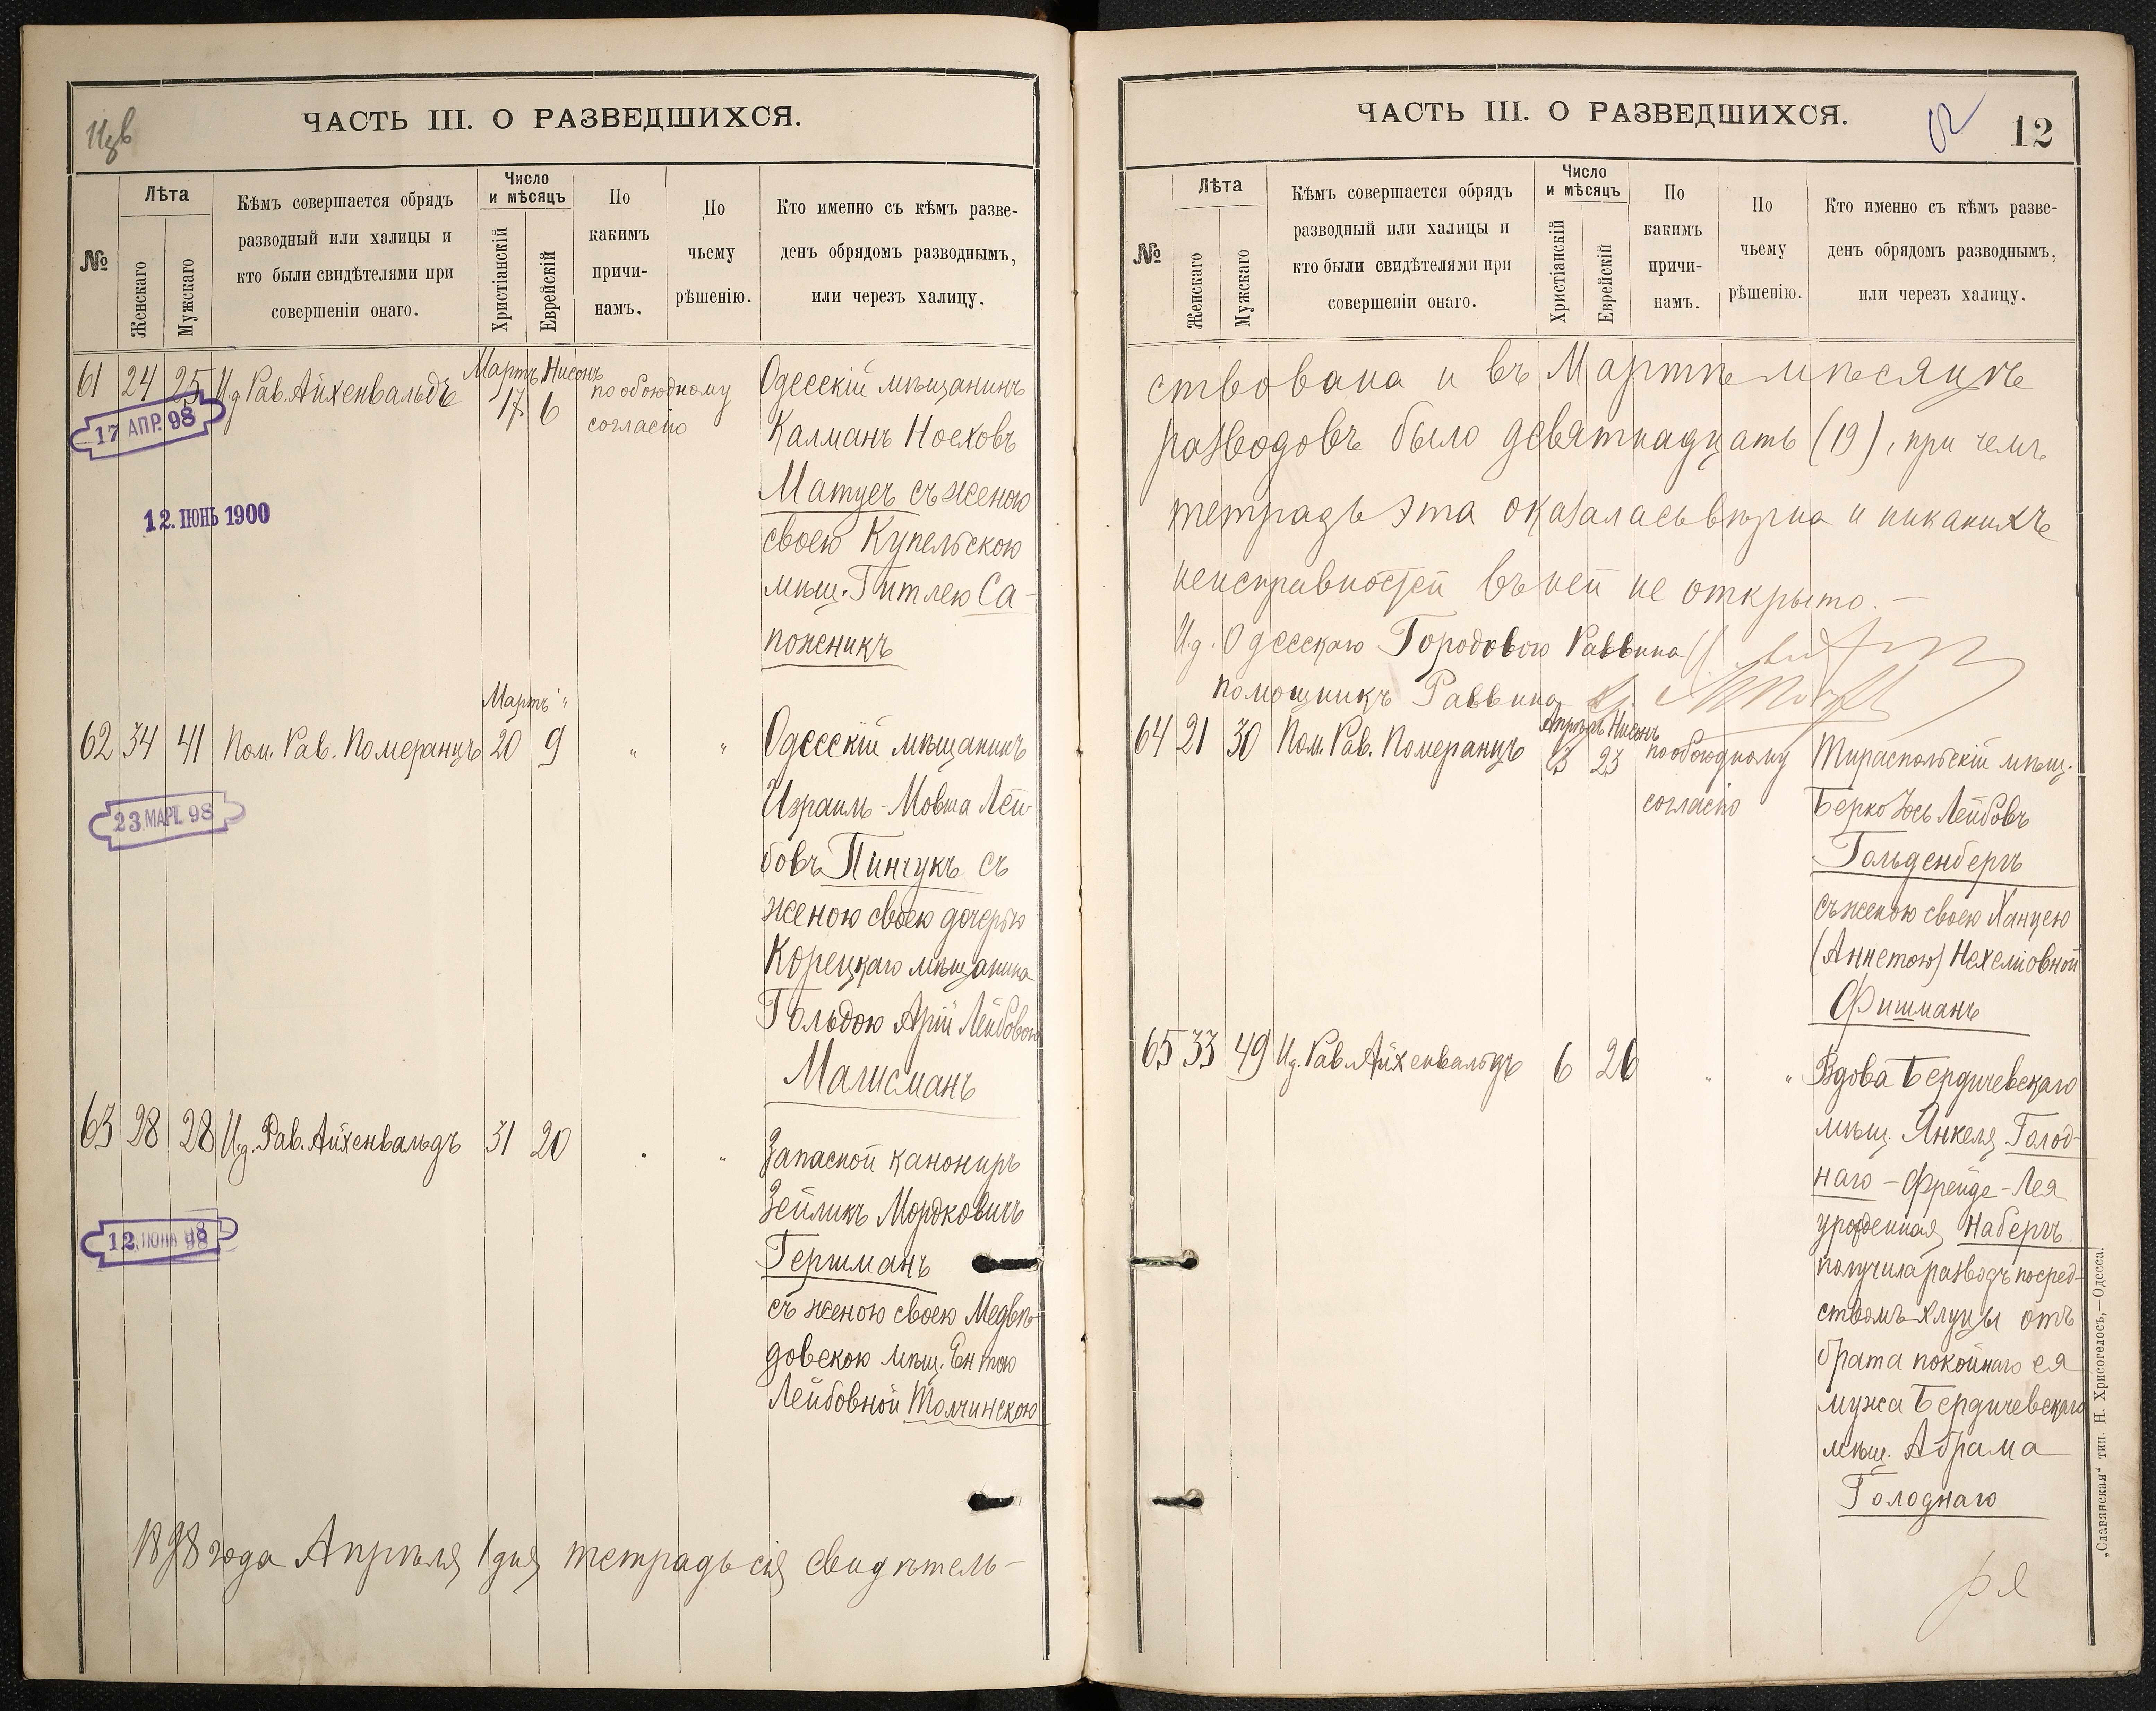 ЧАСТЬ III. О РАЗВЕДШИХСЯ.
№
Лѣта
Женскаго
Мужскаго
Кѣмъ совершается обрядъ
разводный или халицы и
кто были свидѣтелями при
совершеніи онаго.
Число
и мѣсяцъ
Христіанскій
Еврейскій
По
какимъ
причи-
намъ.
По
чьему
рѣшенію.
Кто именно съ кѣмъ разве-
денъ обрядомъ разводнымъ,
или черезъ халицу.
Мартъ Нисонъ
61 24 25 И.д. Рав. Айхенвальдъ 17 6 по обоюдному
согласію
Одесскій мѣщанинъ
Калманъ Ноеховъ
Матусъ съ женою
своею Купельскою
мѣщ. Гитлею Са-
поженикъ
17 АПР. 98
12. ІЮНЬ 1900
Мартъ "
62 34 41 Пом. Рав. Померанцъ 20 9 " "
Одесскій мѣщанинъ
Израиль-Мовша Лей-
бовъ Пинчукъ съ
женою своею дочерью
Корецкаго мѣщанина
Гольдою Арій Лейбовою
Малисманъ
23 МАРТ. 98
63 28 28 И.д. Рав. Айхенвальдъ 31 20 " "
Запасной канониръ
Зейликъ Мордковичъ
Гершманъ
съ женою своею Медвѣ-
довскою мѣщ. Ентою
Лейбовной Толчинскою
12. ІЮНЯ 98
1898 года Апрѣля 1 дня тетрадь сія свидѣтель-
ЧАСТЬ III. О РАЗВЕДШИХСЯ.
12
№
Лѣта
Женскаго
Мужскаго
Кѣмъ совершается обрядъ
разводный или халицы и
кто были свидѣтелями при
совершеніи онаго.
Число
и мѣсяцъ
Христіанскій
Еврейскій
По
какимъ
причи-
намъ.
По
чьему
рѣшенію.
Кто именно съ кѣмъ разве-
денъ обрядомъ разводнымъ,
или черезъ халицу.
ствована и въ Мартѣ мѣсяцѣ
разводовъ было девятнадцать (19), при чемъ
тетрадь эта оказалась вѣрна и никакихъ
неисправностей въ ней не открыто. —
И.д. Одесскаго Городового Раввина
помощникъ Раввина
Апрѣль Нисонъ
64 21 30 Пом. Рав. Померанцъ 3 23 по обоюдному
согласію
Тираспольскій мѣщ.
Берко Іось Лейбовъ
Гольденбергъ
съ женою своею Ханцею
(Аннетою) Нехеміовной
Фишманъ
65 33 49 И.д. Рав. Айхенвальдъ 6 26 " "
Вдова Бердичевскаго
мѣщ. Янкеля Голод-
наго - Фрейде-Лея
урожденная Набергъ
получила разводъ посред-
ствомъ хлицы отъ
брата покойнаго ея
мужа Бердичевскаго
мѣщ. Абрама
Голоднаго
„Славянская" тип. Н. Хрисогелосъ,—Одесса.